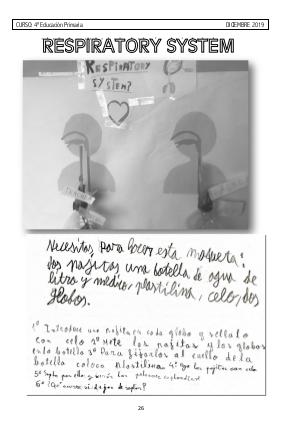 CURSO: 4º Educación Primaria DICIEMBRE 2019
RESPIRATORY SYSTEM
RESPIRATORY
SYSTEM?
Necesitas, para hacer esta maqueta:
dos pajitas, una botella de agua de
litro y medio, plastilina, celo, dos
globos.
1º Introduce una pajita en cada globo y séllalo
con celo 2º Mete las pajitas y los globos
en la botella 3º Para fijarlos al cuello de la
botella coloca plastilina 4º las pajitas con celo
5º Sopla por ella y los pulmones
6º ¿Qué ocurre si dejas de soplar?
26